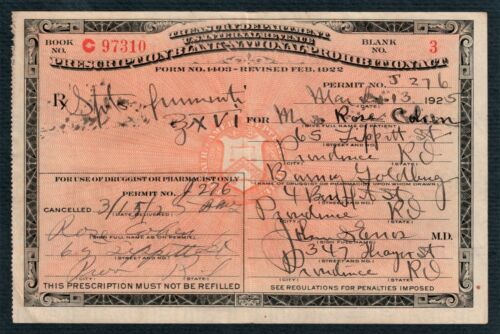 TREASURY DEPARTMENT
U.S. INTERNAL REVENUE
BOOK NO. C 97310
BLANK NO. 3
PRESCRIPTION BLANK-NATIONAL PROHIBITION ACT
FORM NO. 1403-REVISED FEB. 1922
PERMIT NO. J 276
Rx Spts frumenti
Mar 13 1925
℥XVI
FOR Mrs Rose Cohen
(GIVE FULL NAME OF PATIENT)
65 Lippitt St
(STREET AND NO.)
Providence RI
(CITY) (STATE)
FOR USE OF DRUGGIST OR PHARMACIST ONLY
NAME OF DRUGGIST OR PHARMACIST UPON WHOM DRAWN
PERMIT NO. 276
St
(STREET AND NO.)
CANCELLED 3/15/25
(DATE FILLED)
Providence RI
(CITY) (STATE)
M.D.
(SIGN FULL NAME AS ON PERMIT)
(SIGN FULL NAME)
65
(STREET AND NO.)
Thayer St
(STREET AND NO.)
Prov RI
(CITY) (STATE)
Providence RI
(CITY) (STATE)
THIS PRESCRIPTION MUST NOT BE REFILLED
SEE REGULATIONS FOR PENALTIES IMPOSED